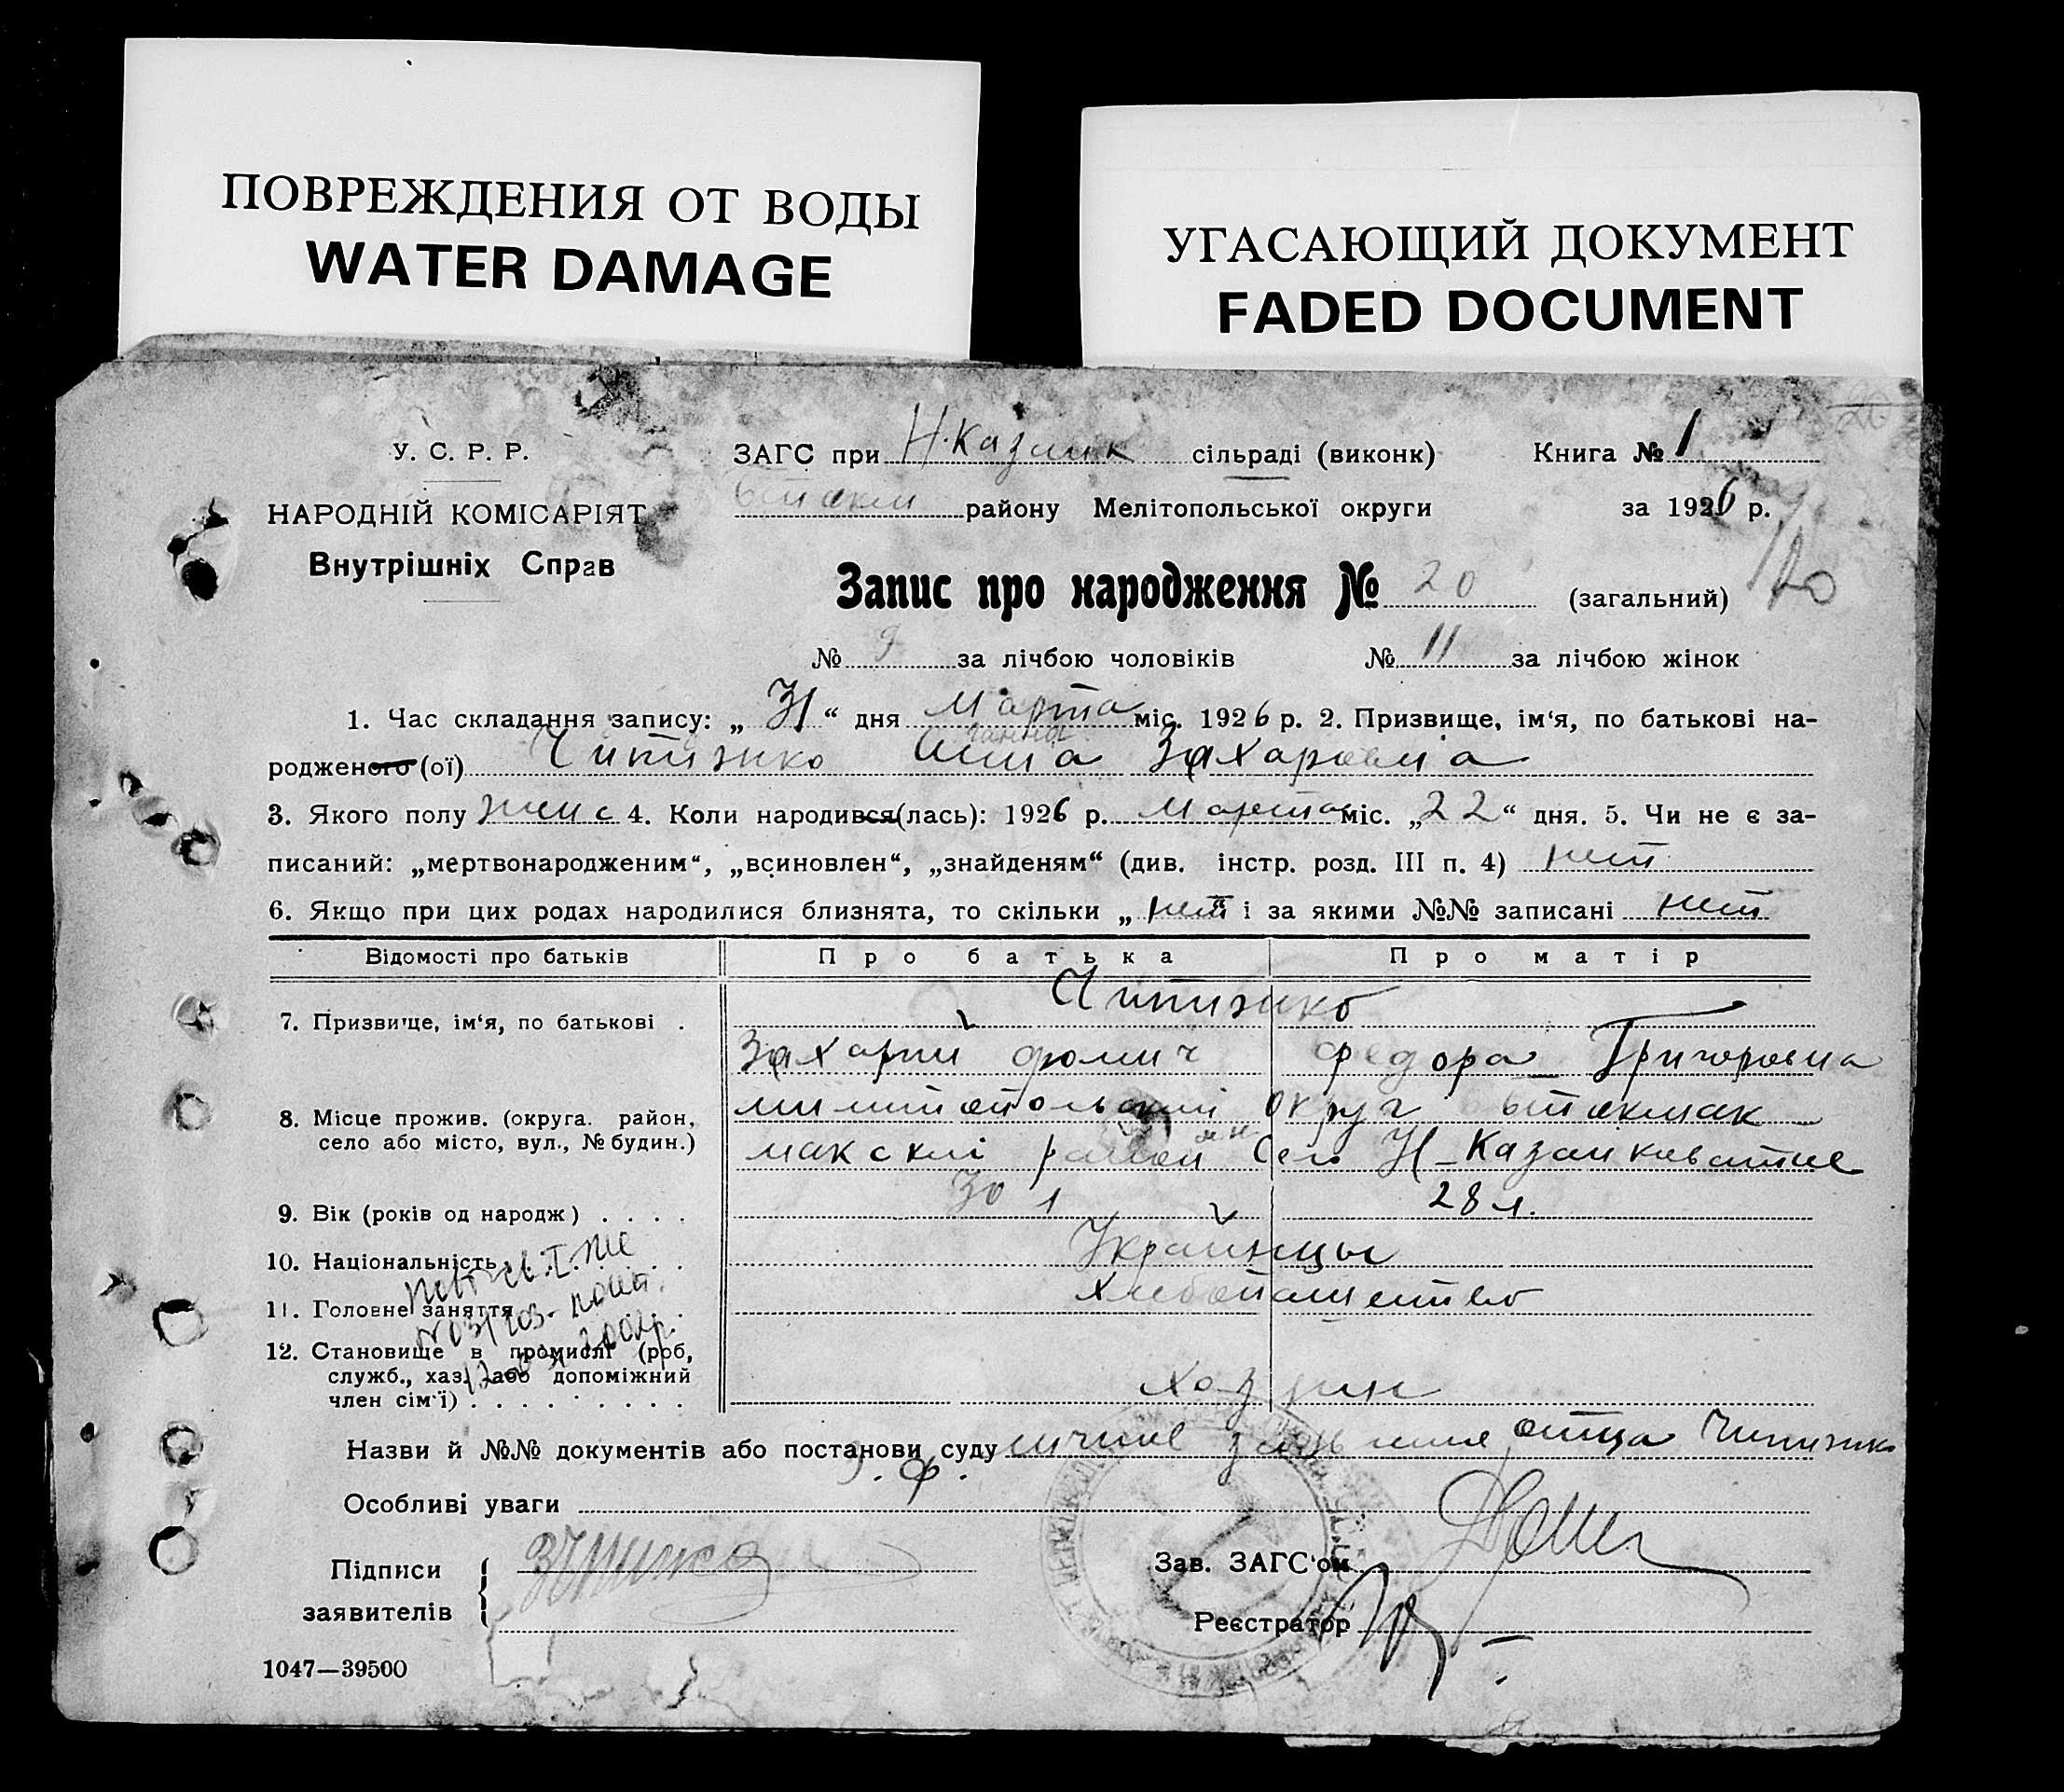 ПОВРЕЖДЕНИЯ ОТ ВОДЫ
WATER DAMAGE
УГАСАЮЩИЙ ДОКУМЕНТ
FADED DOCUMENT
У. С. Р. Р.
НАРОДНІЙ КОМІСАРІЯТ
Внутрішніх Справ
ЗАГС при Н. Казанк сільраді (виконк)
району Мелітопольської округи
Книга № 1
за 1926 р.
Запис про народження № 20 (загальний)
№ 9 за лічбою чоловіків № 11 за лічбою жінок
1. Час складання запису: „ 31 “ дня Марта міс. 1926 р. 2. Призвище, ім‘я, по батькові на-
родженого (ої) Анна Захаровна
3. Якого полу женс 4. Коли народився(лась): 1926 р. Марта міс. „22“ дня. 5. Чи не є за-
писаний: „мертвонародженим“, „всиновлен“, „знайденям“ (див. інстр. розд. III п. 4) нет
6. Якщо при цих родах народилися близнята, то скільки „ нет “ і за якими №№ записані нет
Відомості про батьків Про батька Про матір
7. Призвище, ім‘я, по батькові .
Захарий Фомич Федора Григоровна
8. Місце прожив. (округа. район,
село або місто, вул., № будин.)
округ
район Село Н-Казанковатне
9. Вік (років од народж) . . . . 30 л 28 л.
10. Національність . . . . . Украинцы
11. Головне заняття . . . . хлебопашество
12. Становище в промислі (роб,
служб., хаз. або допоміжний
член сім‘ї) . . . . . . . . . хозяин
Назви й №№ документів або постанови суду личное отца
З. Ф.
Особливі уваги
Підписи
заявителів
Зав. ЗАГС‘ом
Реєстратор
1047—39500